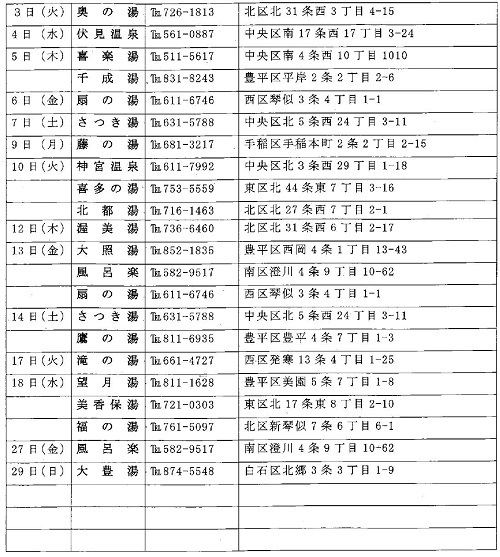 3日(火) 奥の湯 ℡726-1813 北区北31条西3丁目4-15
4日(水) 伏見温泉 ℡561-0887 中央区南17条西17丁目3-24
5日(木) 喜楽湯 ℡511-5617 中央区南4条西10丁目1010
千成湯 ℡831-8243 豊平区平岸2条2丁目2-6
6日(金) 扇の湯 ℡611-6746 西区琴似3条4丁目1-1
7日(土) さつき湯 ℡631-5788 中央区北5条西24丁目3-11
9日(月) 藤の湯 ℡681-3217 手稲区手稲本町2条2丁目2-15
10日(火) 神宮温泉 ℡611-7992 中央区北3条西29丁目1-18
喜多の湯 ℡753-5559 東区北44条東7丁目3-16
北都湯 ℡716-1463 北区北27条西7丁目2-1
12日(木) 渥美湯 ℡736-6460 北区北31条西6丁目2-17
13日(金) 大照湯 ℡852-1835 豊平区西岡4条1丁目13-43
風呂楽 ℡582-9517 南区澄川4条9丁目10-62
扇の湯 ℡611-6746 西区琴似3条4丁目1-1
14日(土) さつき湯 ℡631-5788 中央区北5条西24丁目3-11
鷹の湯 ℡811-6935 豊平区豊平4条7丁目1-3
17日(火) 滝の湯 ℡661-4727 西区発寒13条4丁目1-25
18日(水) 望月湯 ℡811-1628 豊平区美園5条7丁目1-8
美香保湯 ℡721-0303 東区北17条東8丁目2-10
福の湯 ℡761-5097 北区新琴似7条6丁目6-1
27日(金) 風呂楽 ℡582-9517 南区澄川4条9丁目10-62
29日(日) 大豊湯 ℡874-5548 白石区北郷3条3丁目1-9